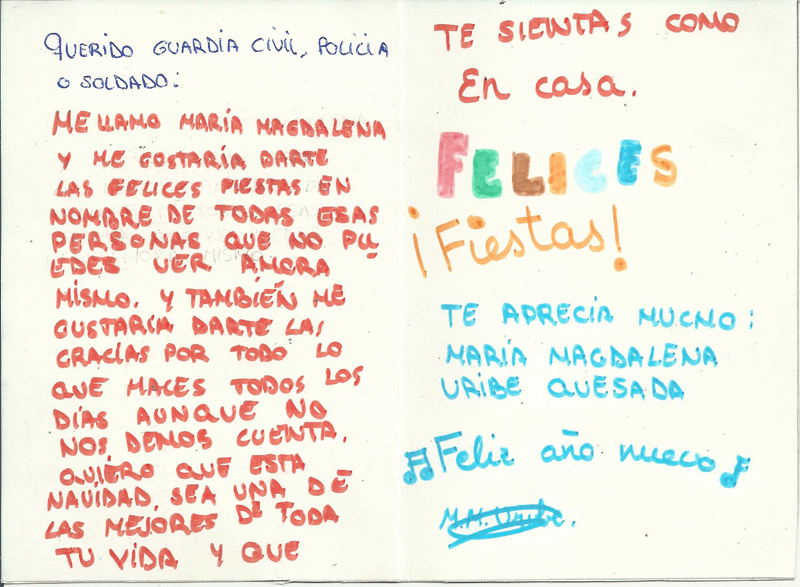 QUERIDO GUARDIA CIVIL, POLICIA
O SOLDADO:
ME LLAMO MARÍA MAGDALENA
Y ME GUSTARÍA DARTE
LAS FELICES FIESTAS EN
NOMBRE DE TODAS ESAS
PERSONAS QUE NO PU
EDES VER AHORA
MISMO. Y TAMBIÉN ME
GUSTARÍA DARTE LAS
GRACIAS POR TODO LO
QUE HACES TODOS LOS
DÍAS AUNQUE NO
NOS DEMOS CUENTA.
QUIERO QUE ESTA
NAVIDAD, SEA UNA DE
LAS MEJORES DE TODA
TU VIDA Y QUE
TE SIENTAS COMO
En casa.
FELICES
¡Fiestas!
TE APRECIA MUCHO:
MARÍA MAGDALENA
URIBE QUESADA
Feliz año nuevo
M.M. Uribe.